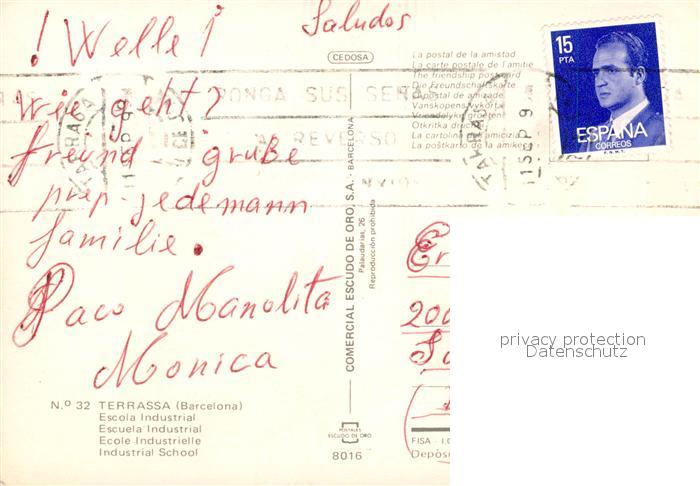 Saludos
! Welle !
Wie geht?
freund grüße
prep. jedemann
familie.
Paco Manolita
Monica
N.º 32 TERRASSA (Barcelona)
Escola Industrial
Escuela Industrial
Ecole Industrielle
Industrial School
CEDOSA
COMERCIAL ESCUDO DE ORO, S.A. - BARCELONA
Palaudarias, 26
Reproducción prohibida
POSTALES
ESCUDO DE ORO
8016
La postal de la amistad
La carte postale de l'amitié
The friendship postcard
Die Freundschaftskarte
O postal de amizade
Vanskopens vykort
Vriendelyke groeten
Otkritka druzh
La cartolina de amicizia
La poŝtkarto de la amikeco
PONGA SUS SEÑAS
AL REVERSO
15
PTA
ESPAÑA
CORREOS
F.N.M.T.
11 SEP 9
Er
200
FISA - I.G
Depós
privacy protection
Datenschutz